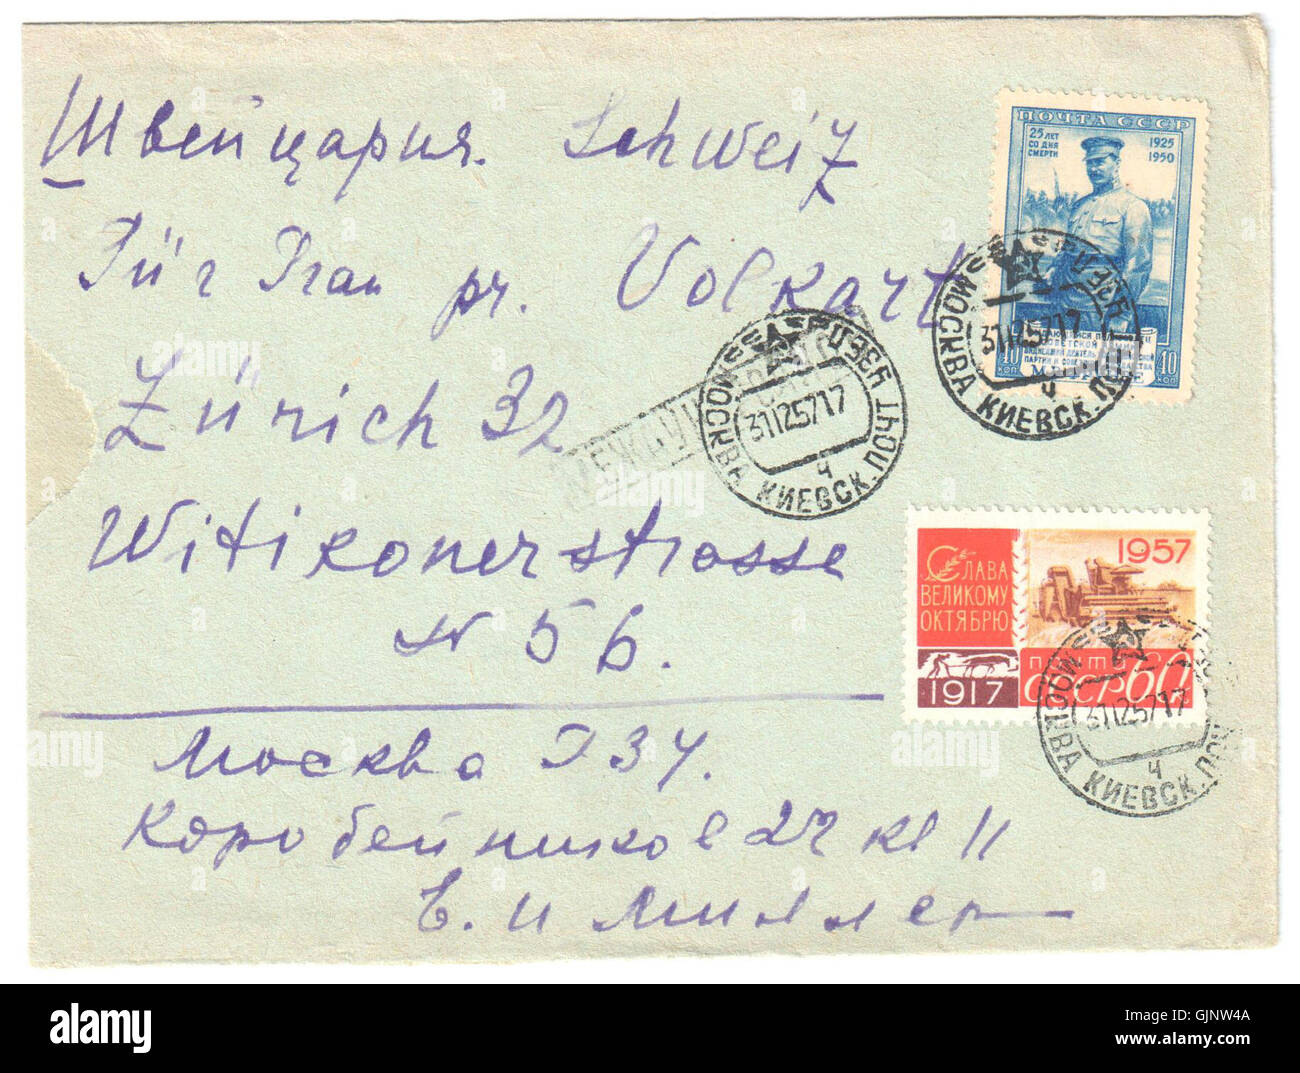 Швейцария. Schweiz
Für Frau pr. Volkart
Zürich 32
Witikonerstrasse
N 56.
Москва Г34.
Коробейников 24 кв 11
Е. и Миллер
ПОЧТА СССР
25 ЛЕТ
СО ДНЯ
СМЕРТИ
1925
1950
40 КОП
40 КОП
МОСКВА КИЕВСК. ПОЧТ
311257 17
Ч
МОСКВА КИЕВСК. ПОЧТ
311257 17
Ч
СЛАВА
ВЕЛИКОМУ
ОКТЯБРЮ
1957
1917
ПОЧТА
СССР 60
МОСКВА КИЕВСК. ПОЧ
311257 17
Ч
alamy
alamy stock photo
GJNW4A
www.alamy.com